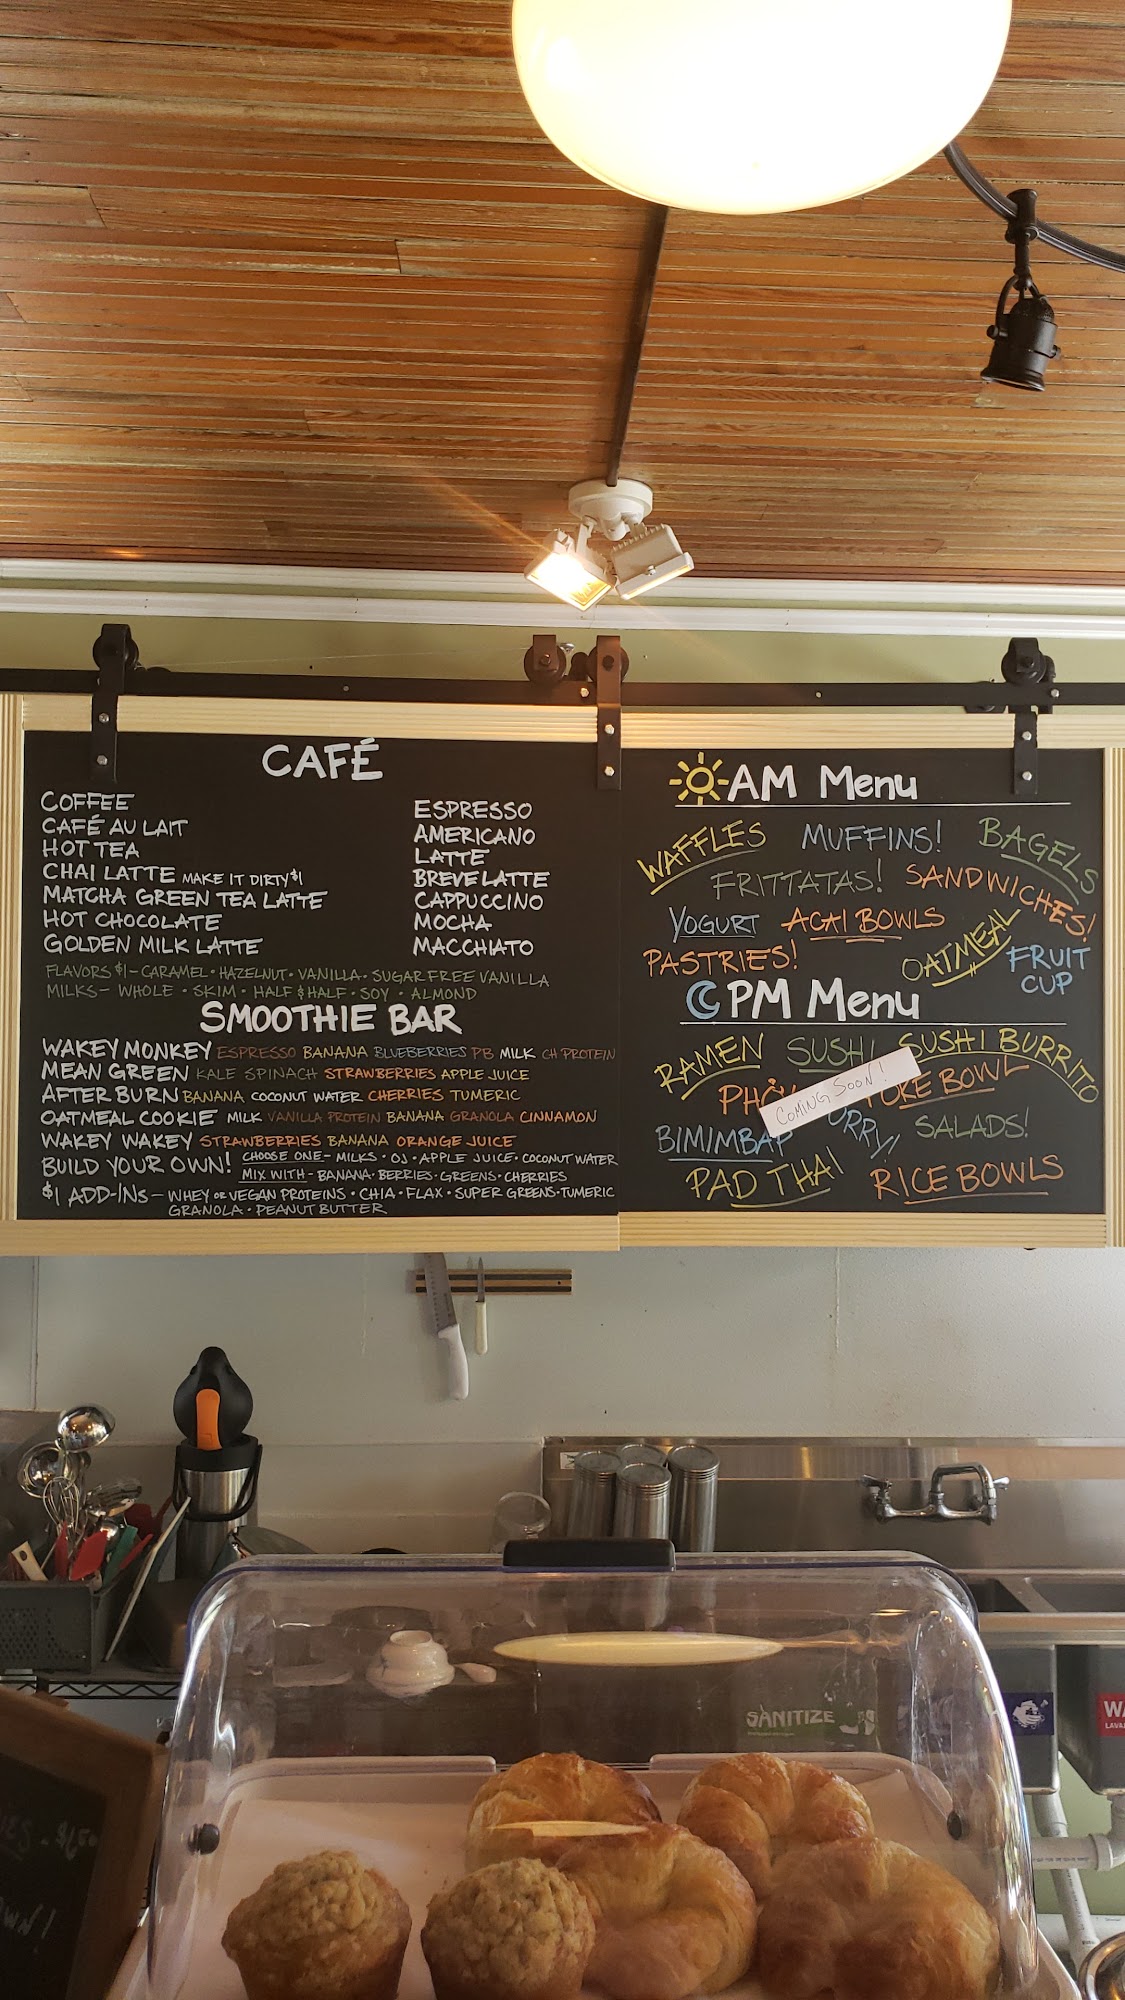 CAFÉ
COFFEE
CAFÉ AU LAIT
HOT TEA
CHAI LATTE MAKE IT DIRTY $1
MATCHA GREEN TEA LATTE
HOT CHOCOLATE
GOLDEN MILK LATTE
ESPRESSO
AMERICANO
LATTE
BREVE LATTE
CAPPUCCINO
MOCHA
MACCHIATO
FLAVORS $1 - CARAMEL • HAZELNUT • VANILLA • SUGAR FREE VANILLA
MILKS - WHOLE • SKIM • HALF & HALF • SOY • ALMOND
SMOOTHIE BAR
WAKEY MONKEY ESPRESSO BANANA BLUEBERRIES PB MILK CH PROTEIN
MEAN GREEN KALE SPINACH STRAWBERRIES APPLE JUICE
AFTER BURN BANANA COCONUT WATER CHERRIES TUMERIC
OATMEAL COOKIE MILK VANILLA PROTEIN BANANA GRANOLA CINNAMON
WAKEY WAKEY STRAWBERRIES BANANA ORANGE JUICE
BUILD YOUR OWN! CHOOSE ONE - MILKS • OJ • APPLE JUICE • COCONUT WATER
MIX WITH - BANANA • BERRIES • GREENS • CHERRIES
$1 ADD-INS - WHEY OR VEGAN PROTEINS • CHIA • FLAX • SUPER GREENS • TUMERIC
GRANOLA • PEANUT BUTTER
AM Menu
WAFFLES MUFFINS! BAGELS
FRITTATAS! SANDWICHES!
YOGURT ACAI BOWLS
PASTRIES! OATMEAL FRUIT
CUP
PM Menu
RAMEN SUSHI SUSHI BURRITO
OKE BOWL
COMING SOON!
BIMIMBAP URRY! SALADS!
PAD THAI RICE BOWLS
SANITIZE
WA